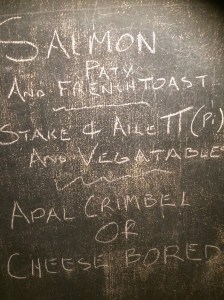 SALMON
PATY
AND FRENCH TOAST
STAKE & AILE π (Pi)
AND VEGATABLES
APAL CRIMBEL
OR
CHEESE BORED